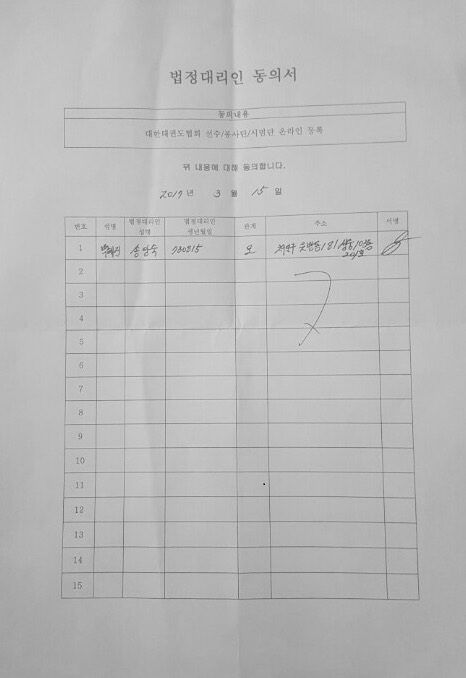 법정대리인 동의서
동의내용
대한태권도협회 선수/품사단/시범단 온라인 등록
위 내용에 대해 동의합니다.
2019년 3월 15일
번호 성명 법정대리인 성명 법정대리인 생년월일 관계 주소 서명
1 730215 모
2013
2
3
4
5
6
7
8
9
10
11
12
13
14
15